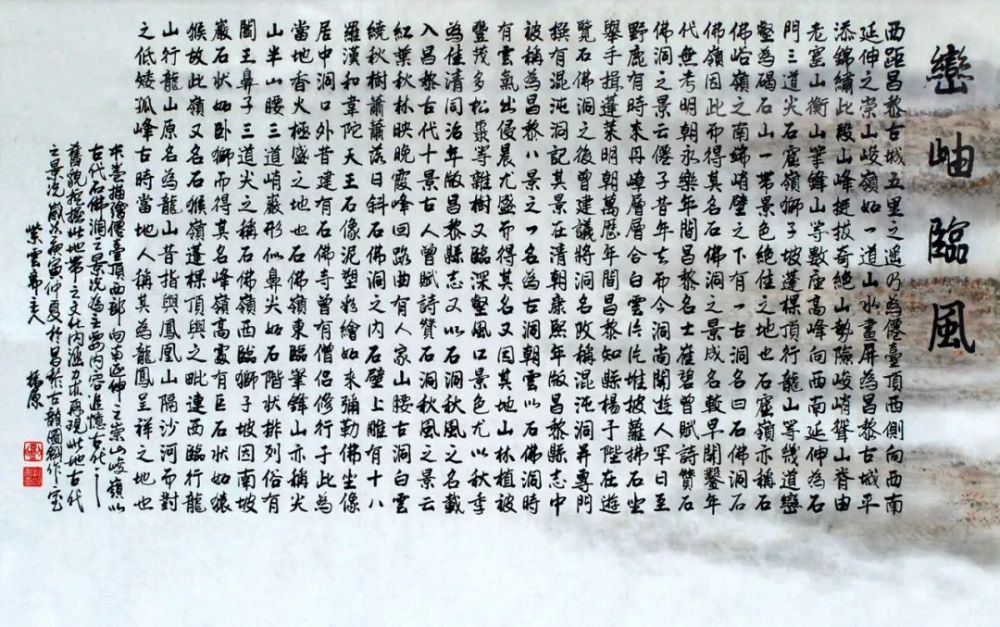 巒岫臨風
西距昌黎古城五里之遥乃為僊臺頂西側向西南
延伸之崇山峻嶺如一道山水畫屏為昌黎古城平
添錦繡此段山峰挺拔奇絕山勢險峻峭聳山脊由
老窰山衡山筆鋒山等數座高峰向西南延伸為石
門三道火石窟嶺獅子坡蓬棵頂行龍山等幾道巒
壑為碣石山一帶景色絕佳之地也石窟嶺亦稱石
佛峪嶺之南端峭壁之下有一古洞名曰石佛洞石
佛嶺因此而得其名石佛洞之景成名較早開鑿年
代無考明朝永樂年間昌黎名士崔碧曾賦詩贊石
佛洞之景云僊子昔年去而今洞尚開遊人罕日至
野鹿有時來丹嶂層層合白雲片片堆披蘿拂石坐
舉手揖蓬萊明朝萬曆年間昌黎知縣楊于陛在遊
覽石佛洞之後曾建議將洞名改稱混沌洞并專門
撰有混沌洞記其景在清朝康熙年版昌黎縣志中
被稱為昌黎八景之一名為古洞朝雲以石佛洞時
有雲氣出侵晨尤盛而得其名又因其地山林植被
豐茂多松等雜樹又臨深壑風口景色尤以秋季
為佳清同治年版昌黎縣志又以石洞秋風之名載
入昌黎古代十景古人曾賦詩贊石洞秋風之景云
紅葉秋林映晚霞峰回路曲有人家山腰古洞白雲
繞秋樹蕭蕭落日斜石佛洞之内石壁上雕有十八
羅漢和韋陀天王石像泥塑彩繪如來彌勒佛坐像
居中洞口外昔建有石佛寺曾有僧侶修行于此為
當地香火極盛之地也石佛嶺東臨筆鋒山亦稱尖
山半山腰三道峭巖形似鼻尖如石階狀排列俗有
閻王鼻子三道尖之稱石佛嶺西臨獅子坡因南坡
巖石狀如卧獅而得其名峰嶺高處有巨石狀如猿
猴故此嶺又名石猴嶺蓬棵頂與之毗連西臨行龍
山行龍山原名為龍山昔指與鳳凰山隔沙河而對
之低矮孤峰古時當地人稱其為龍鳳呈祥之地也
本卷描繪僊臺頂西部向西延伸之崇山峻嶺以
古代石佛洞之景況為主要内容追憶古代之
舊貌挖掘此地帶之文化内涵力求再現此地古代
之景況歲次庚寅仲夏於昌黎古韻園作室
紫雲主人 振原